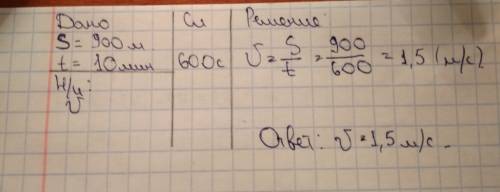 Дано
S = 900 м
t = 10 мин
Н/и:
V
Си
600 с
Решение:
V = S/t = 900/600 = 1,5 (м/с)
Ответ: V = 1,5 м/с.